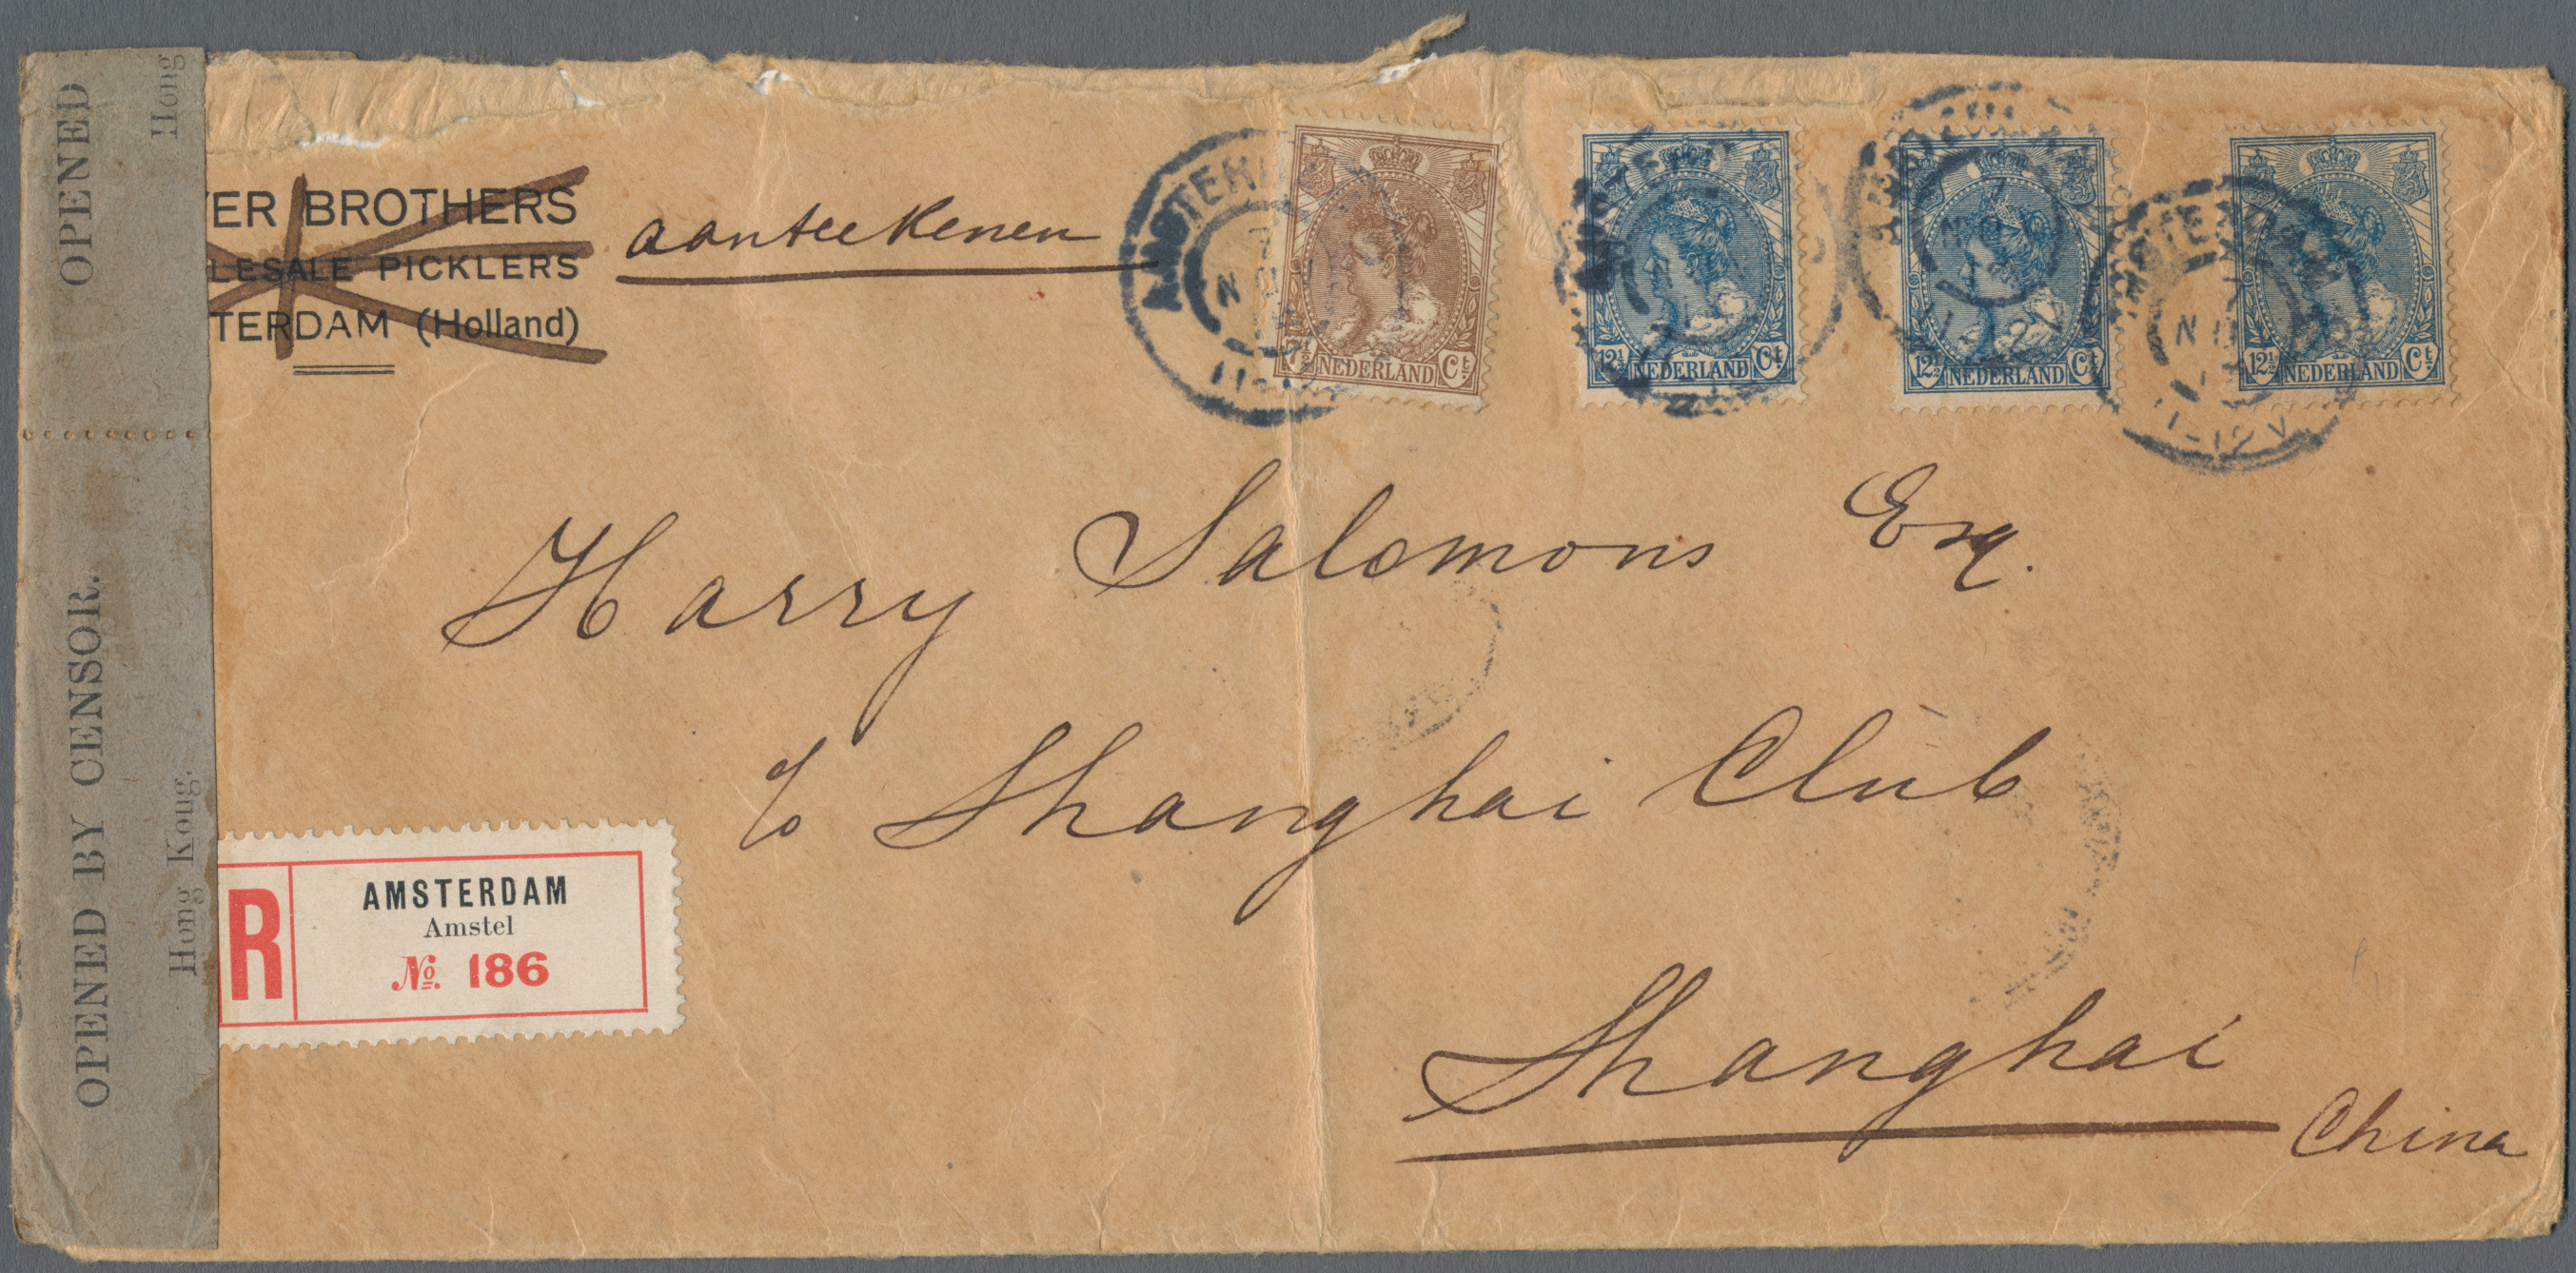 OPENED
Hong
OPENED BY CENSOR.
Hong Kong.
ER BROTHERS
LESALE PICKLERS
TERDAM (Holland)
aanteekenen
7½ NEDERLAND Ct
12½ NEDERLAND Ct
12½ NEDERLAND Ct
12½ NEDERLAND Ct
11-12 V
Harry Salomons Esq.
c/o Shanghai Club
Shanghai
China
R
AMSTERDAM
Amstel
No. 186